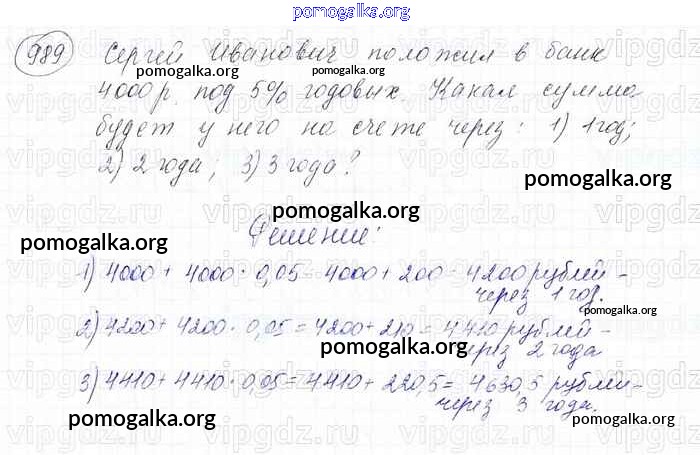 pomogalka.org
989 Сергей Иванович положил в банк
4000 р. под 5% годовых. Какая сумма
будет у него на счете через: 1) 1 год;
2) 2 года; 3) 3 года?
Решение:
1) 4000 + 4000 · 0,05 = 4000 + 200 = 4200 рублей -
через 1 год.
2) 4200 + 4200 · 0,05 = 4200 + 210 = 4410 рублей -
через 2 года
3) 4410 + 4410 · 0,05 = 4410 + 220,5 = 4630,5 рублей -
через 3 года.
pomogalka.org
pomogalka.org
pomogalka.org
pomogalka.org
pomogalka.org
pomogalka.org
pomogalka.org
pomogalka.org
pomogalka.org